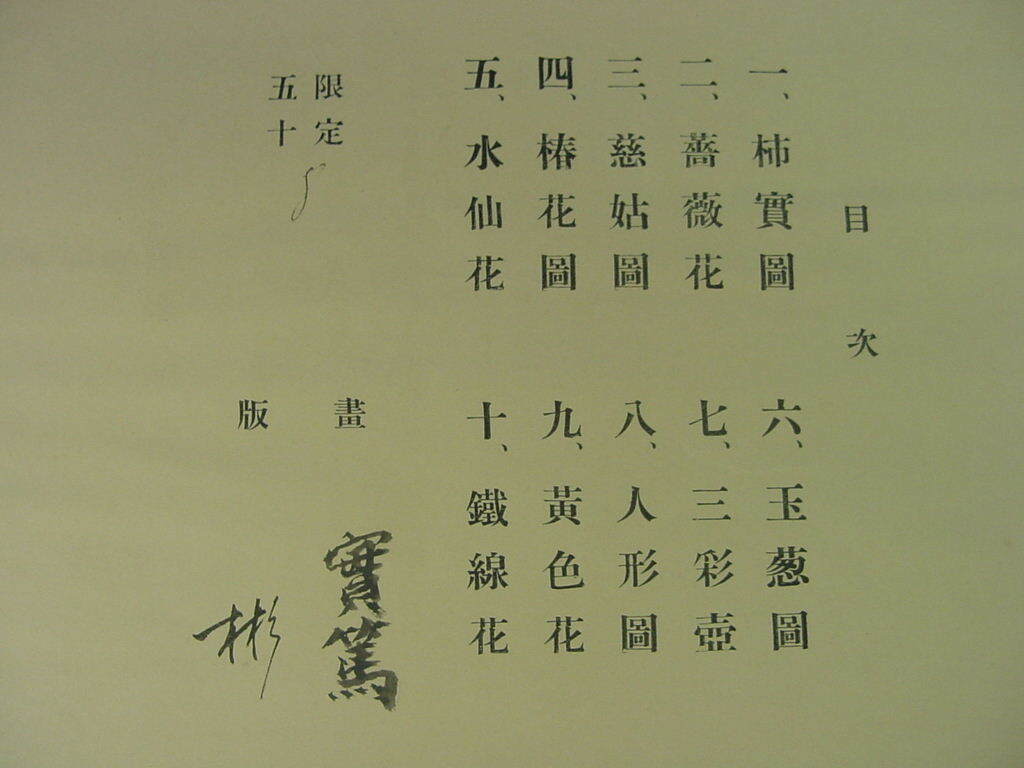 目次
一、柿實圖
二、薔薇花
三、慈姑圖
四、椿花圖
五、水仙花
六、玉葱圖
七、三彩壺
八、人形圖
九、黃色花
十、鐵線花
限定
五十
畫 實篤
版 彬